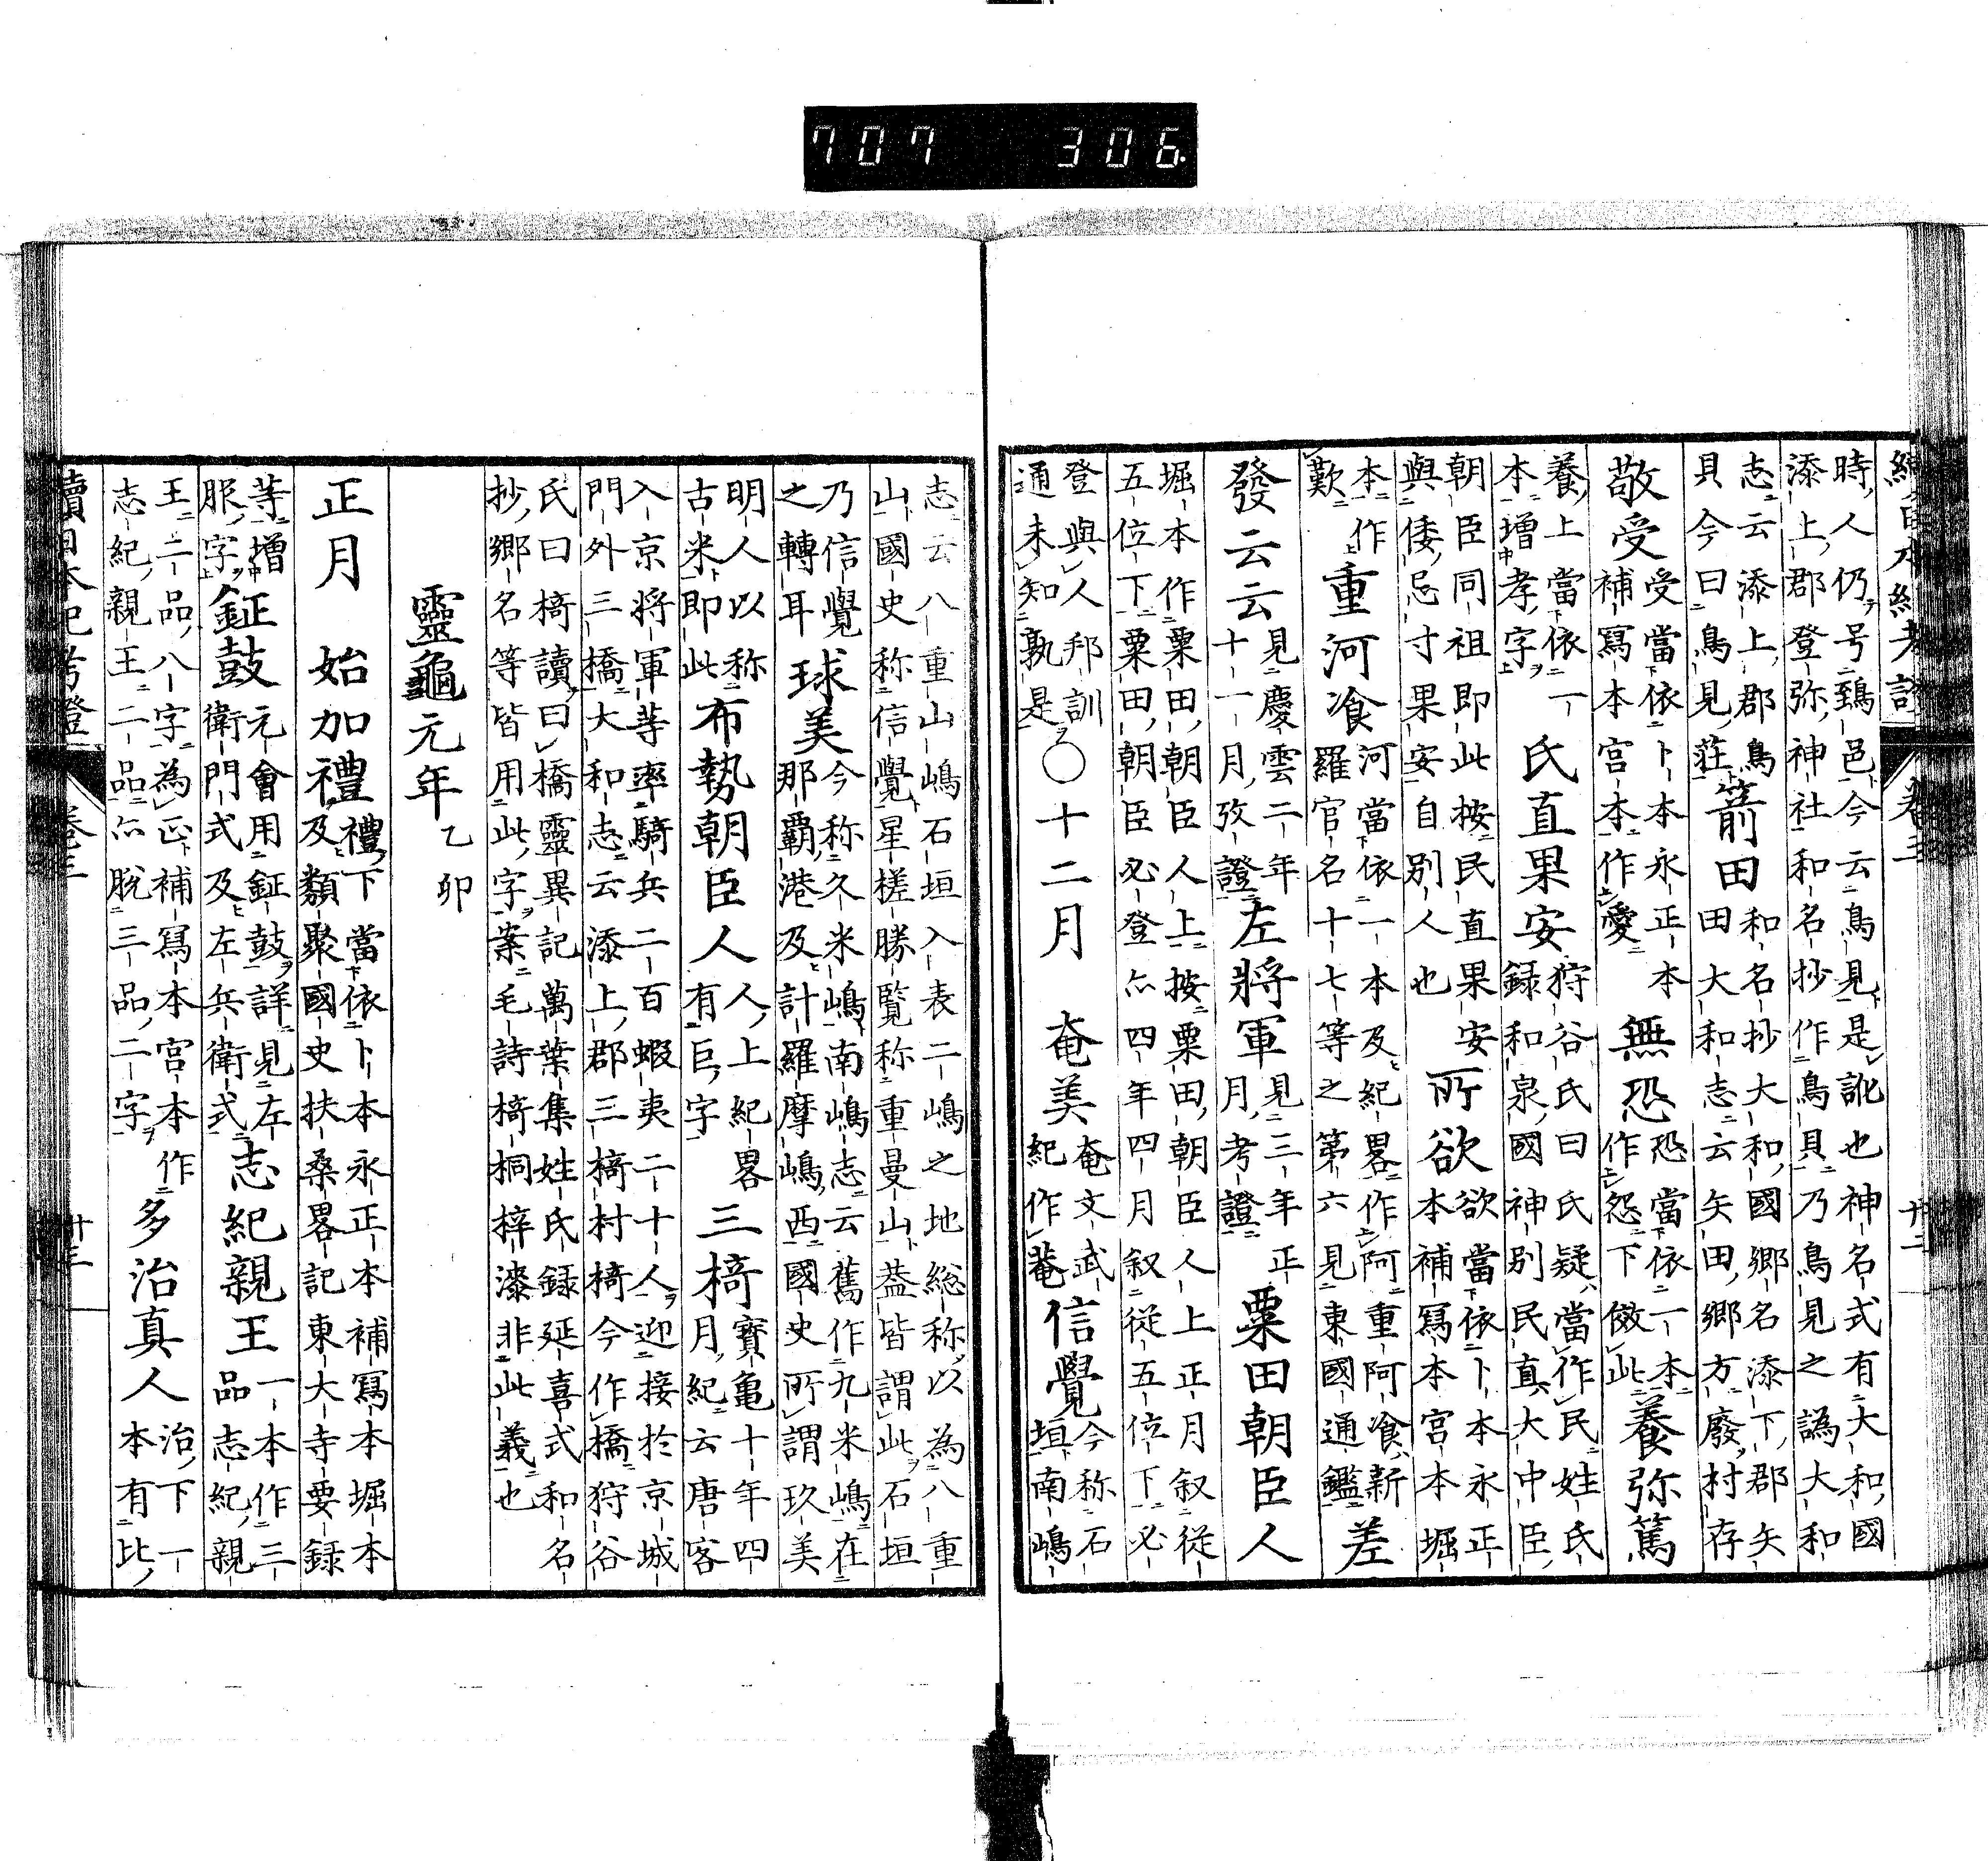 707 306
續日本紀考證 卷三 廿二
時人仍号鵄邑今云鳥見是訛也神名式有大和國
添上郡登弥神社和名抄作鳥貝乃鳥見之譌大和
志云添上郡鳥
貝今曰鳥見莊箭田和名抄大和國鄉名添下郡矢
田大和志云矢田鄉方廢村存
敬受受當依卜本永正本
補寫本宮本作愛無恐恐當依一本
作怨下倣此養弥篤
養上當依一
本增孝字氏直果安狩谷氏曰氏疑當作民姓氏
錄和泉國神別民直大中臣
朝臣同祖即此按民直果安
與倭忌寸果安自別人也所欲欲當依卜本永正
本補寫本宮本堀
本作
歎重河飡河當依一本及紀畧作阿重阿飡新
羅官名十七等之第六見東國通鑑差
發云云見慶雲二年
十一月攷證左將軍見三年正
月考證粟田朝臣人
堀本作粟田朝臣人上按粟田朝臣人上正月叙從
五位下粟田朝臣必登亦四年四月叙從五位下必
登與人邦訓
通未知孰是〇十二月 奄美奄文武
紀作菴信覺今称石
垣南嶋
志云八重山嶋石垣入表二嶋之地総称以為八重
山國史称信覺星槎勝覧称重曼山葢皆謂此石垣
乃信覺
之轉耳球美今称久米嶋南嶋志云舊作九米嶋在
那覇港及計羅摩嶋西國史所謂玖美
明人以称
古米即此布勢朝臣人人上紀畧
有巨字三橋寶亀十年四
月紀云唐客
入京將軍等率騎兵二百蝦夷二十人迎接於京城
門外三橋大和志云添上郡三椅村椅今作橋狩谷
氏曰椅讀曰橋靈異記萬葉集姓氏録延喜式和名
抄鄉名等皆用此字案毛詩椅桐梓漆非此義也
靈龜元年乙卯
正月 始加禮禮下當依卜本永正本補寫本堀本
及類聚國史扶桑畧記東大寺要録
等增
服字鉦鼓元會用鉦鼓詳見左
衛門式及左兵衛式志紀親王一本作三
品志紀親
王二品八字為正補寫本宮本作
志紀親王二品亦脱三品二字多治真人治下一
本有比
續日本紀考證 卷三 廿三